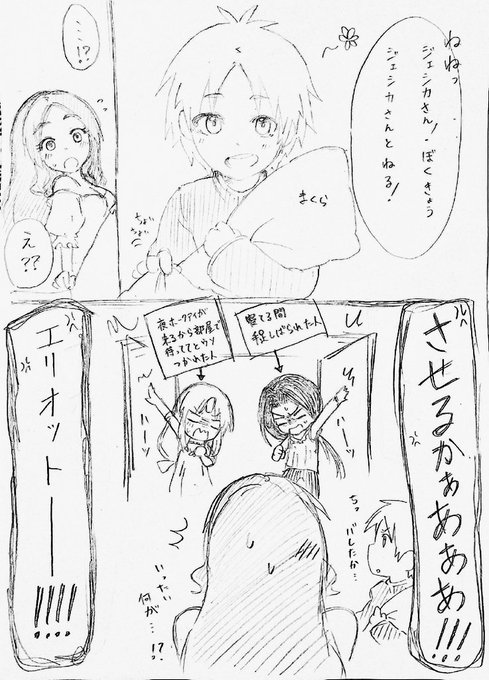 ねねっ
ジェシカさん！ぼくきょう
ジェシカさんとねる！
まくら
ちょい
ちょい
…!?
え??
させるかぁあぁぁ!!!
寝てる間
程しばられた人
夜ホークアイが
来るから部屋で
待っててとウソ
つかれた人
ハーッ
ハーッ
エリオットーー!!!!
ちっ
バレたか…
いったい
何が…!?